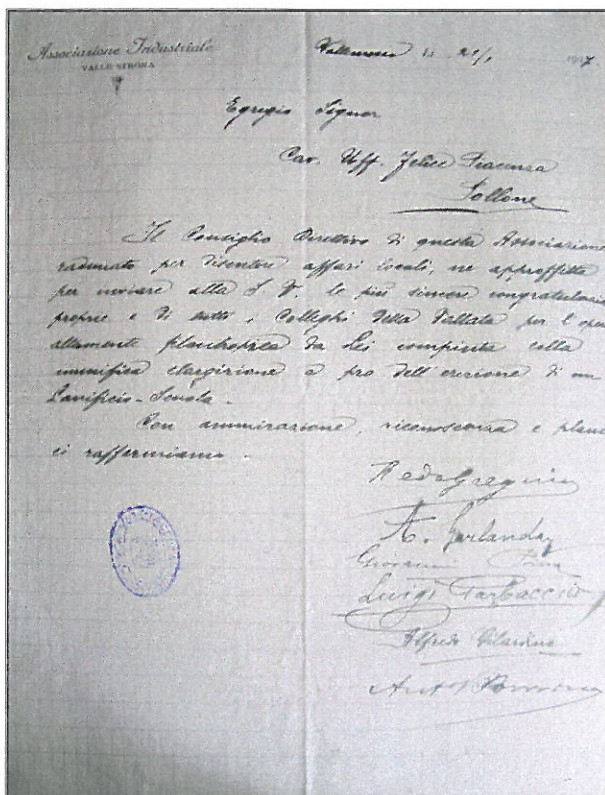 Associazione Industriale
VALLE STRONA
Vallemosso li 21/1 1907.
Egregio Signor
Cav. Uff. Felice Piacenza
Pollone
Il Consiglio Direttivo di questa Associazione
radunato per discutere affari locali, ne approffitta
per inviare alla S. V. le più sincere congratulazio
proprie e di tutti i Colleghi della Vallata per l'opera
altamente plausibile da Lei compiuta colla
munifica elargizione a pro dell'erezione di un
Lanificio-Scuola.
Con ammirazione, riconoscenza e plauso
ci raffermiamo.
A. Garlanda
Giovanni
Luigi Garbaccio
Alfredo Gilardino